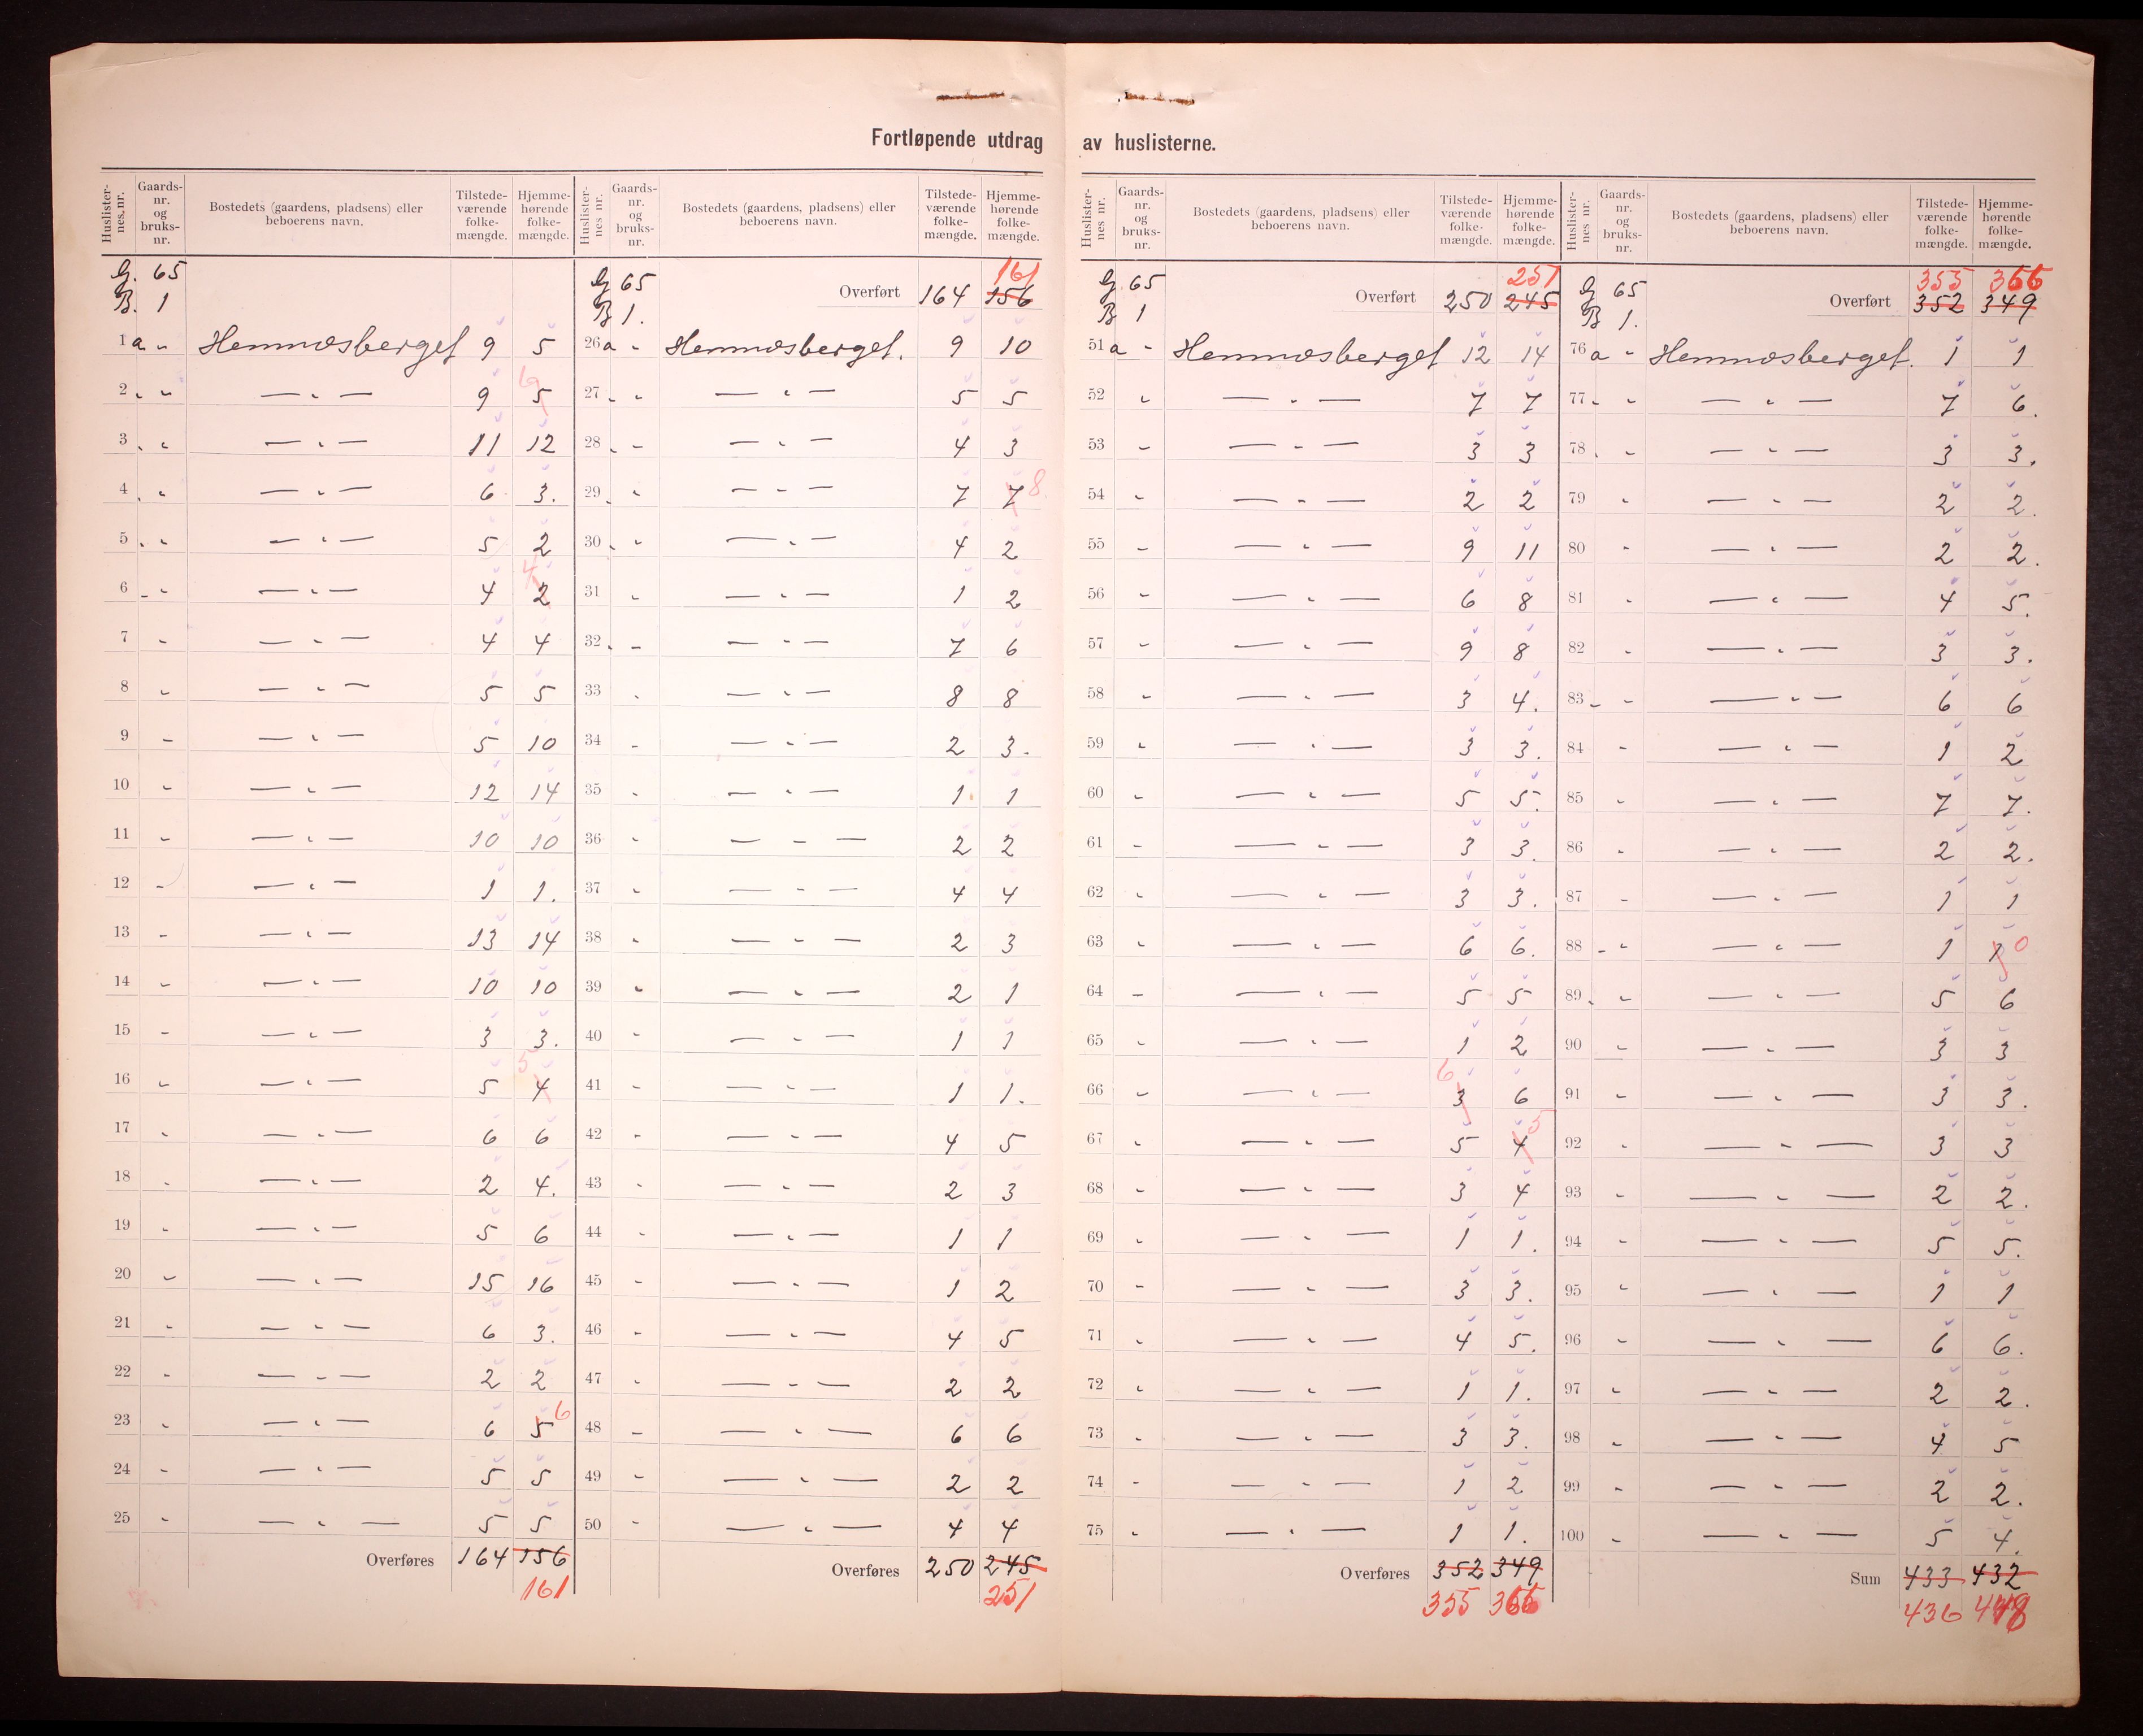 Fortløpende utdrag av huslisterne.
Huslisternes, nr. Gaards-nr. og bruks-nr. Bostedets (gaardens, pladsens) eller beboerens navn. Tilstede-værende folke-mængde. Hjemme-hørende folke-mængde.
G. 65
B. 1
1 a " Hemnæsberget 9 5
2 " " — " — 9 5 6
3 " " — " — 11 12
4 " " — " — 6 3.
5 " " — " — 5 2
6 " " — " — 4 2 4
7 " — " — 4 4
8 " — " — 5 5
9 " — " — 5 10
10 " — " — 12 14
11 " — " — 10 10
12 " — " — 1 1.
13 " — " — 13 14
14 " — " — 10 10
15 " — " — 3 3.
16 " — " — 5 4 5
17 " — " — 6 6
18 " — " — 2 4.
19 " — " — 5 6
20 " — " — 15 16
21 " — " — 6 3.
22 " — " — 2 2
23 " — " — 6 5 6
24 " — " — 5 5
25 " — " — 5 5
Overføres 164 156
161
Huslisternes nr. Gaards-nr. og bruks-nr. Bostedets (gaardens, pladsens) eller beboerens navn. Tilstede-værende folke-mængde. Hjemme-hørende folke-mængde.
161
G 65
B 1. Overført 164 156
26 a " Hemnæsberget. 9 10
27 " " — " — 5 5
28 " " — " — 4 3
29 " " — " — 7 7 8.
30 " " — " — 4 2
31 " — " — 1 2
32 " " — " — 7 6
33 " — " — 8 8
34 " — " — 2 3.
35 " — " — 1 1
36 " — " — 2 2
37 " — " — 4 4
38 " — " — 2 3
39 " — " — 2 1
40 " — " — 1 1
41 " — " — 1 1.
42 " — " — 4 5
43 " — " — 2 3
44 " — " — 1 1
45 " — " — 1 2
46 " — " — 4 5
47 " — " — 2 2
48 " — " — 6 6
49 " — " — 2 2
50 " — " — 4 4
Overføres 250 245
251
Huslisternes nr. Gaards-nr. og bruks-nr. Bostedets (gaardens, pladsens) eller beboerens navn. Tilstede-værende folke-mængde. Hjemme-hørende folke-mængde.
251
G. 65
B 1 Overført 250 245
51 a " Hemnæsberget 12 14
52 " — " — 7 7
53 " — " — 3 3
54 " — " — 2 2
55 " — " — 9 11
56 " — " — 6 8
57 " — " — 9 8
58 " — " — 3 4.
59 " — " — 3 3.
60 " — " — 5 5.
61 " — " — 3 3.
62 " — " — 3 3.
63 " — " — 6 6.
64 " — " — 5 5
65 " — " — 1 2
66 " — " — 6 3 6
67 " — " — 5 4 5
68 " — " — 3 4
69 " — " — 1 1.
70 " — " — 3 3.
71 " — " — 4 5.
72 " — " — 1 1.
73 " — " — 3 3.
74 " — " — 1 2
75 " — " — 1 1.
Overføres 352 349
355 366
Huslisternes nr. Gaards-nr. og bruks-nr. Bostedets (gaardens, pladsens) eller beboerens navn. Tilstede-værende folke-mængde. Hjemme-hørende folke-mængde.
355 366
G 65
B 1. Overført 352 349
76 a " Hemnæsberget. 1 1
77 " " — " — 7 6.
78 " " — " — 3 3.
79 " — " — 2 2.
80 " — " — 2 2.
81 " — " — 4 5.
82 " — " — 3 3.
83 " " — " — 6 6
84 " — " — 1 2
85 " — " — 7 7.
86 " — " — 2 2.
87 " — " — 1 1
88 " " — " — 1 1 0
89 " " — " — 5 6
90 " — " — 3 3
91 " — " — 3 3.
92 " — " — 3 3
93 " — " — 2 2.
94 " — " — 5 5.
95 " — " — 1 1
96 " — " — 6 6.
97 " — " — 2 2.
98 " — " — 4 5
99 " — " — 2 2.
100 " — " — 5 4.
Sum 433 432
436 448